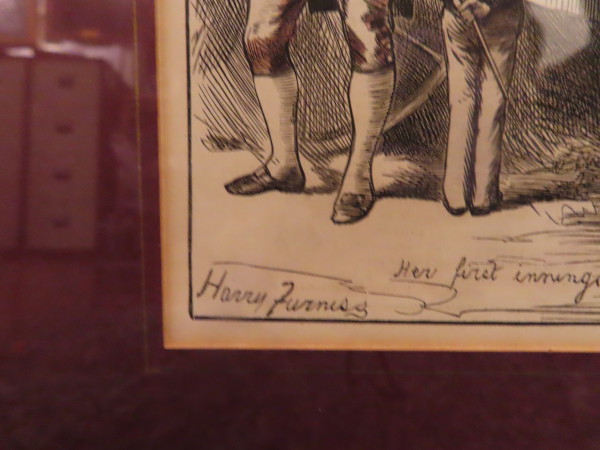 Her first innings
Harry Furniss